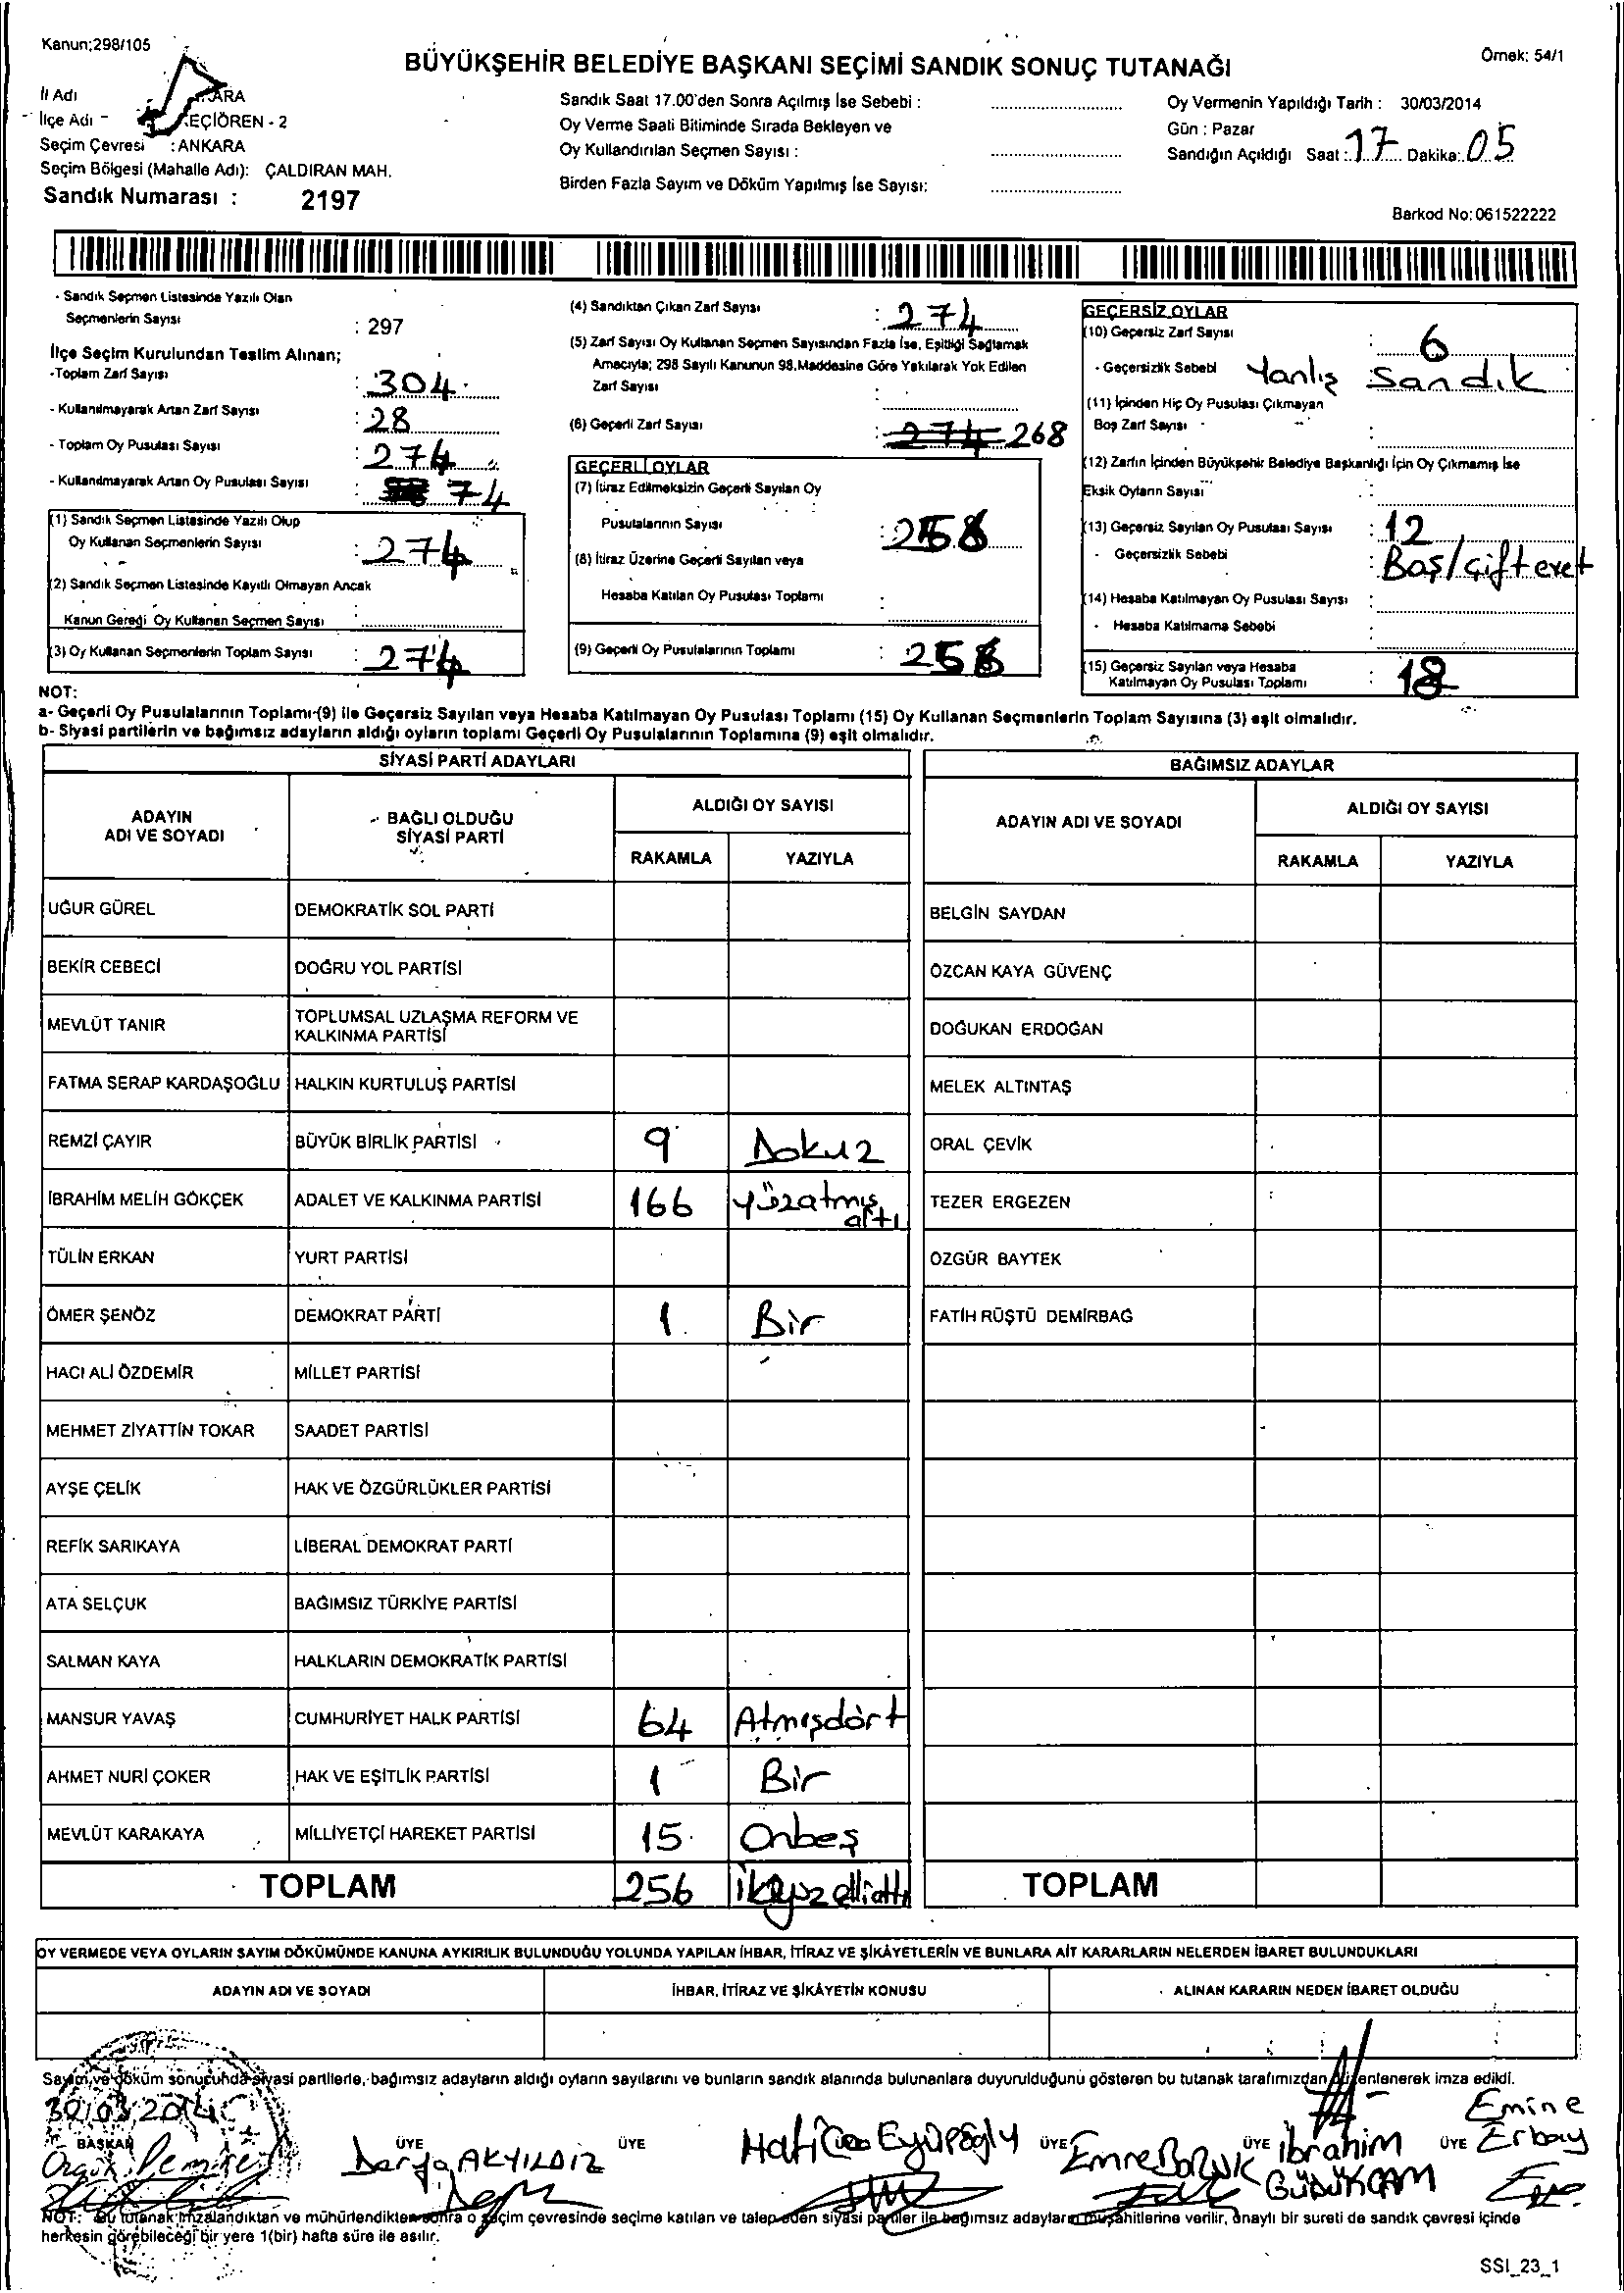 Kanun;298/105
BÜYÜKŞEHİR BELEDİYE BAŞKANI SEÇİMİ SANDIK SONUÇ TUTANAĞI
Örnek: 54/1
İl Adı
İlçe Adı EÇİÖREN - 2
Seçim Çevresi : ANKARA
Seçim Bölgesi (Mahalle Adı): ÇALDIRAN MAH.
Sandık Numarası : 2197
Sandık Saat 17.00'den Sonra Açılmış İse Sebebi :
Oy Verme Saati Bitiminde Sırada Bekleyen ve
Oy Kullandırılan Seçmen Sayısı :
Birden Fazla Sayım ve Döküm Yapılmış İse Sayısı:
Oy Vermenin Yapıldığı Tarih : 30/03/2014
Gün : Pazar
Sandığın Açıldığı Saat : 17 Dakika: 05
Barkod No: 061522222
- Sandık Seçmen Listesinde Yazılı Olan
Seçmenlerin Sayısı : 297
İlçe Seçim Kurulundan Teslim Alınan;
-Toplam Zarf Sayısı : 304
- Kullanılmayarak Artan Zarf Sayısı : 28
- Toplam Oy Pusulası Sayısı : 274
- Kullanılmayarak Artan Oy Pusulası Sayısı : 74
(1) Sandık Seçmen Listesinde Yazılı Olup
Oy Kullanan Seçmenlerin Sayısı : 274
(2) Sandık Seçmen Listesinde Kayıtlı Olmayan Ancak
Kanun Gereği Oy Kullanan Seçmen Sayısı :
(3) Oy Kullanan Seçmenlerin Toplam Sayısı : 274
(4) Sandıktan Çıkan Zarf Sayısı : 274
(5) Zarf Sayısı Oy Kullanan Seçmen Sayısından Fazla İse, Eşitliği Sağlamak
Amacıyla; 298 Sayılı Kanunun 98.Maddesine Göre Yakılarak Yok Edilen
Zarf Sayısı :
(6) Geçerli Zarf Sayısı : 274 268
GEÇERLİ OYLAR
(7) İtiraz Edilmeksizin Geçerli Sayılan Oy
Pusulalarının Sayısı :
(8) İtiraz Üzerine Geçerli Sayılan veya
Hesaba Katılan Oy Pusulası Toplamı :
(9) Geçerli Oy Pusulalarının Toplamı :
GEÇERSİZ OYLAR
(10) Geçersiz Zarf Sayısı : 6
- Geçersizlik Sebebi Yanlış Sandık
(11) İçinden Hiç Oy Pusulası Çıkmayan
Boş Zarf Sayısı :
(12) Zarfın İçinden Büyükşehir Belediye Başkanlığı İçin Oy Çıkmamış İse
Eksik Oyların Sayısı :
(13) Geçersiz Sayılan Oy Pusulası Sayısı : 12
- Geçersizlik Sebebi : Boş/çift evet
(14) Hesaba Katılmayan Oy Pusulası Sayısı :
- Hesaba Katılmama Sebebi :
(15) Geçersiz Sayılan veya Hesaba
Katılmayan Oy Pusulası Toplamı : 18
NOT:
a- Geçerli Oy Pusulalarının Toplamı (9) ile Geçersiz Sayılan veya Hesaba Katılmayan Oy Pusulası Toplamı (15) Oy Kullanan Seçmenlerin Toplam Sayısına (3) eşit olmalıdır.
b- Siyasi partilerin ve bağımsız adayların aldığı oyların toplamı Geçerli Oy Pusulalarının Toplamına (9) eşit olmalıdır.
SİYASİ PARTİ ADAYLARI
ADAYIN ADI VE SOYADI
BAĞLI OLDUĞU SİYASİ PARTİ
ALDIĞI OY SAYISI
RAKAMLA YAZIYLA
UĞUR GÜREL DEMOKRATİK SOL PARTİ
BEKİR CEBECİ DOĞRU YOL PARTİSİ
MEVLÜT TANIR TOPLUMSAL UZLAŞMA REFORM VE
KALKINMA PARTİSİ
FATMA SERAP KARDAŞOĞLU HALKIN KURTULUŞ PARTİSİ
REMZİ ÇAYIR BÜYÜK BİRLİK PARTİSİ 9 Dokuz
İBRAHİM MELİH GÖKÇEK ADALET VE KALKINMA PARTİSİ 166 yüzatmış
altı
TÜLİN ERKAN YURT PARTİSİ
ÖMER ŞENÖZ DEMOKRAT PARTİ 1 Bir
HACI ALİ ÖZDEMİR MİLLET PARTİSİ
MEHMET ZİYATTİN TOKAR SAADET PARTİSİ
AYŞE ÇELİK HAK VE ÖZGÜRLÜKLER PARTİSİ
REFİK SARIKAYA LİBERAL DEMOKRAT PARTİ
ATA SELÇUK BAĞIMSIZ TÜRKİYE PARTİSİ
SALMAN KAYA HALKLARIN DEMOKRATİK PARTİSİ
MANSUR YAVAŞ CUMHURİYET HALK PARTİSİ 64 Atmışdört
AHMET NURİ ÇOKER HAK VE EŞİTLİK PARTİSİ 1 Bir
MEVLÜT KARAKAYA MİLLİYETÇİ HAREKET PARTİSİ 15 Onbeş
TOPLAM 256 ikiyüzelliatlı
BAĞIMSIZ ADAYLAR
ADAYIN ADI VE SOYADI
ALDIĞI OY SAYISI
RAKAMLA YAZIYLA
BELGİN SAYDAN
ÖZCAN KAYA GÜVENÇ
DOĞUKAN ERDOĞAN
MELEK ALTINTAŞ
ORAL ÇEVİK
TEZER ERGEZEN
ÖZGÜR BAYTEK
FATİH RÜŞTÜ DEMİRBAĞ
TOPLAM
OY VERMEDE VEYA OYLARIN SAYIM DÖKÜMÜNDE KANUNA AYKIRILIK BULUNDUĞU YOLUNDA YAPILAN İHBAR, İTİRAZ VE ŞİKÂYETLERİN VE BUNLARA AİT KARARLARIN NELERDEN İBARET BULUNDUKLARI
ADAYIN ADI VE SOYADI İHBAR, İTİRAZ VE ŞİKÂYETİN KONUSU ALINAN KARARIN NEDEN İBARET OLDUĞU
Sayım ve döküm sonucunda siyasi partilerle, bağımsız adayların aldığı oyların sayılarını ve bunların sandık alanında bulunanlara duyurulduğunu gösteren bu tutanak tarafımızdan düzenlenerek imza edildi.
30/03/2014
BAŞKAN ÜYE ÜYE ÜYE ÜYE ÜYE
Derya AKYILDIZ
Hatice Eyüpoğlu
Emre
İbrahim
GÜDÜKÇAM
Emine
Erbay
NOT: Bu tutanak imzalandıktan ve mühürlendikten sonra o seçim çevresinde seçime katılan ve talep eden siyasi partiler ile bağımsız adayların müşahitlerine verilir, onaylı bir sureti de sandık çevresi içinde
herkesin görebileceği bir yere 1(bir) hafta süre ile asılır.
SSI_23_1